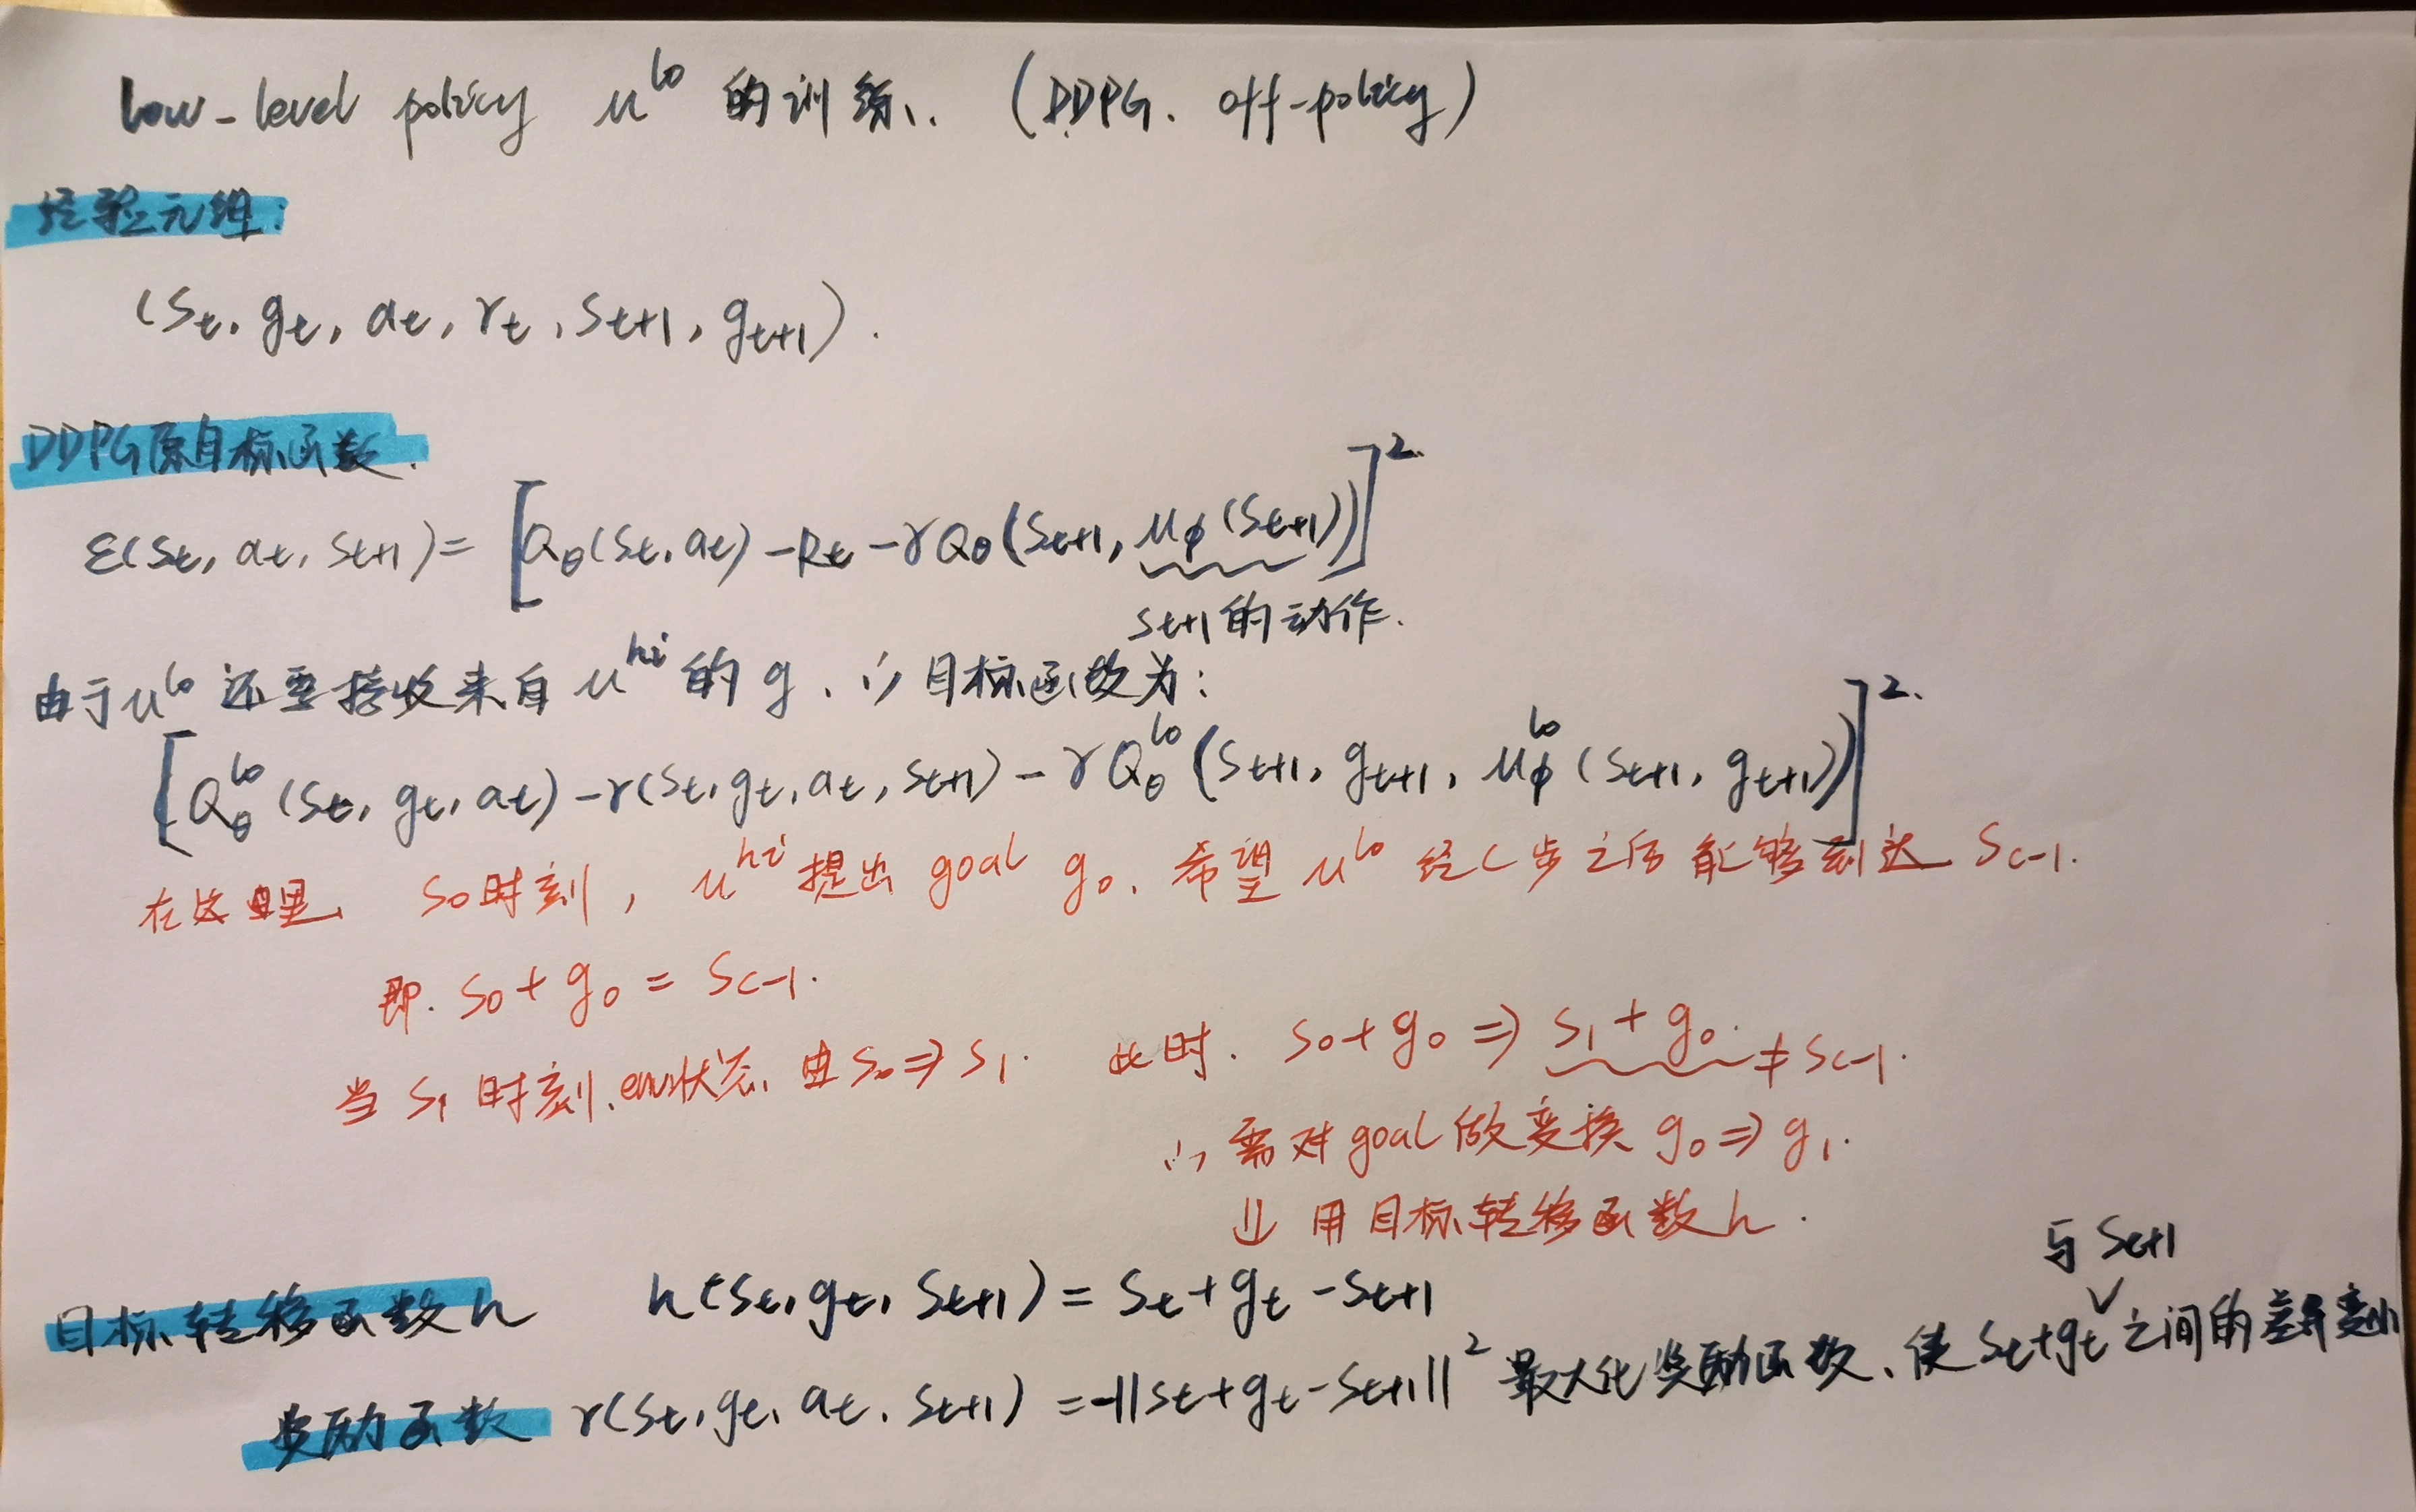 low-level policy μ^lo 的训练. (DDPG. off-policy)
经验元组:
(s_t, g_t, a_t, r_t, s_t+1, g_t+1).
DDPG原目标函数.
ε(s_t, a_t, s_t+1) = [Q_θ(s_t, a_t) - R_t - γQ_θ(s_t+1, μ_φ(s_t+1))]².
s_t+1 的动作.
由于μ^lo 还要接收来自 μ^hi 的 g, ∴ 目标函数为:
[Q_θ^lo (s_t, g_t, a_t) - r(s_t, g_t, a_t, s_t+1) - γQ_θ^lo (s_t+1, g_t+1, μ_φ^lo (s_t+1, g_t+1))]².
在这里, s_0时刻, μ^hi 提出 goal g_0, 希望 μ^lo 经 c 步之后 能够到达 s_c-1.
即. s_0 + g_0 = s_c-1.
当 s_1 时刻, env状态, 由 s_0 ⇒ s_1. 此时. s_0 + g_0 ⇒ s_1 + g_0. ≠ s_c-1.
∴ 需对goal做变换 g_0 ⇒ g_1.
⇓ 用目标转移函数h.
目标转移函数h h(s_t, g_t, s_t+1) = s_t + g_t - s_t+1
与 s_t+1
奖励函数 r(s_t, g_t, a_t, s_t+1) = -||s_t + g_t - s_t+1||² 最大化奖励函数, 使 s_t+g_t ∨ 之间的差异变小